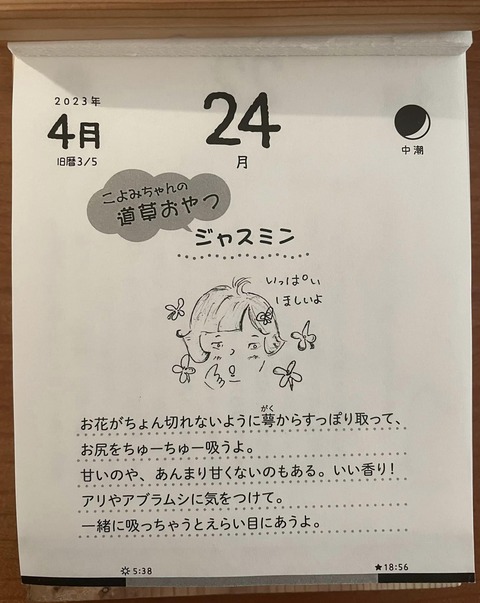 2023年
4月
旧暦3/5
24
月
中潮
こよみちゃんの
道草おやつ
ジャスミン
いっぱい
ほしいよ
お花がちょん切れないように萼からすっぽり取って、
がく
お尻をちゅーちゅー吸うよ。
甘いのや、あんまり甘くないのもある。いい香り!
アリやアブラムシに気をつけて。
一緒に吸っちゃうとえらい目にあうよ。
5:38
★18:56